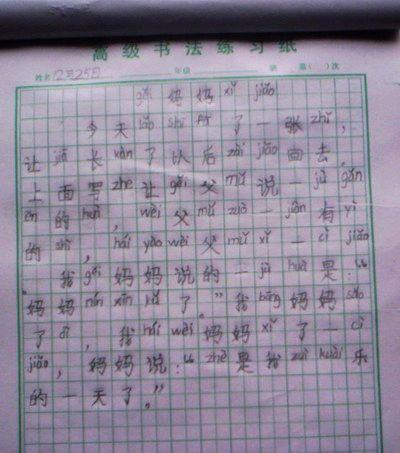 高级书法练习纸
姓名 12月25日 年级 班 第( )次
gěi 妈妈 xǐ jiǎo
今天 lǎo shī fā 了一张 zhǐ，
让 jiā 长 kàn 了以后 zài jiāo 回去。
上面写 zhe 让 gěi 父 mǔ 说一 jù gǎn
ēn 的 huà，wèi 父 mǔ zuò 一 jiàn 有 yì
的 shì，hái yào wèi 父 mǔ xǐ 一 cì jiǎo
。我 gěi 妈妈说的一 jù huà 是：“
妈妈 nín xīn kǔ 了。”我 bāng 妈妈 sǎo
了 dì，我 hái wèi 妈妈 xǐ 了一 cì
jiǎo，妈妈说：“zhè 是我 zuì kuài 乐
的一天了。”